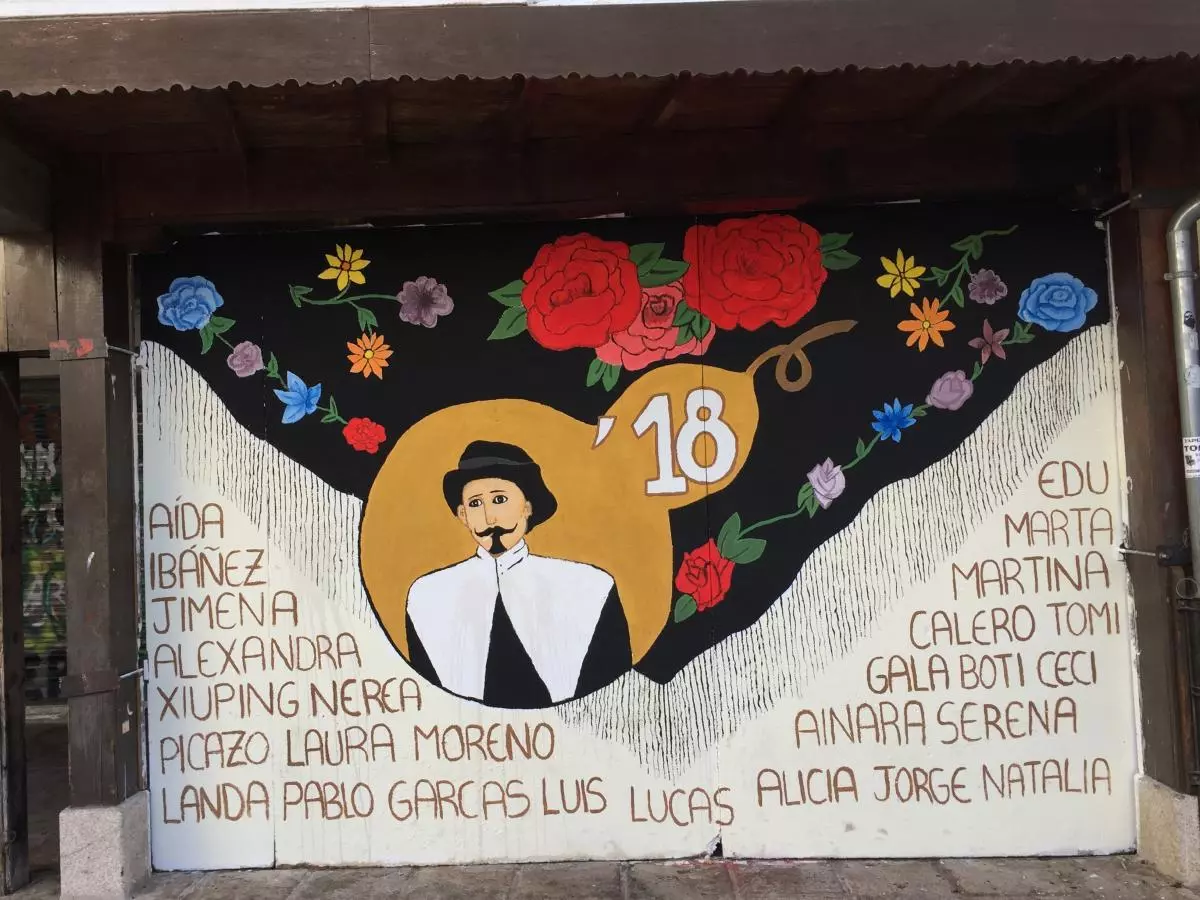 '18
AÍDA
IBÁÑEZ
JIMENA
ALEXANDRA
XIUPING NEREA
PICAZO LAURA MORENO
LANDA PABLO GARCAS LUIS LUCAS
EDU
MARTA
MARTINA
CALERO TOMI
GALA BOTI CECI
AINARA SERENA
ALICIA JORGE NATALIA